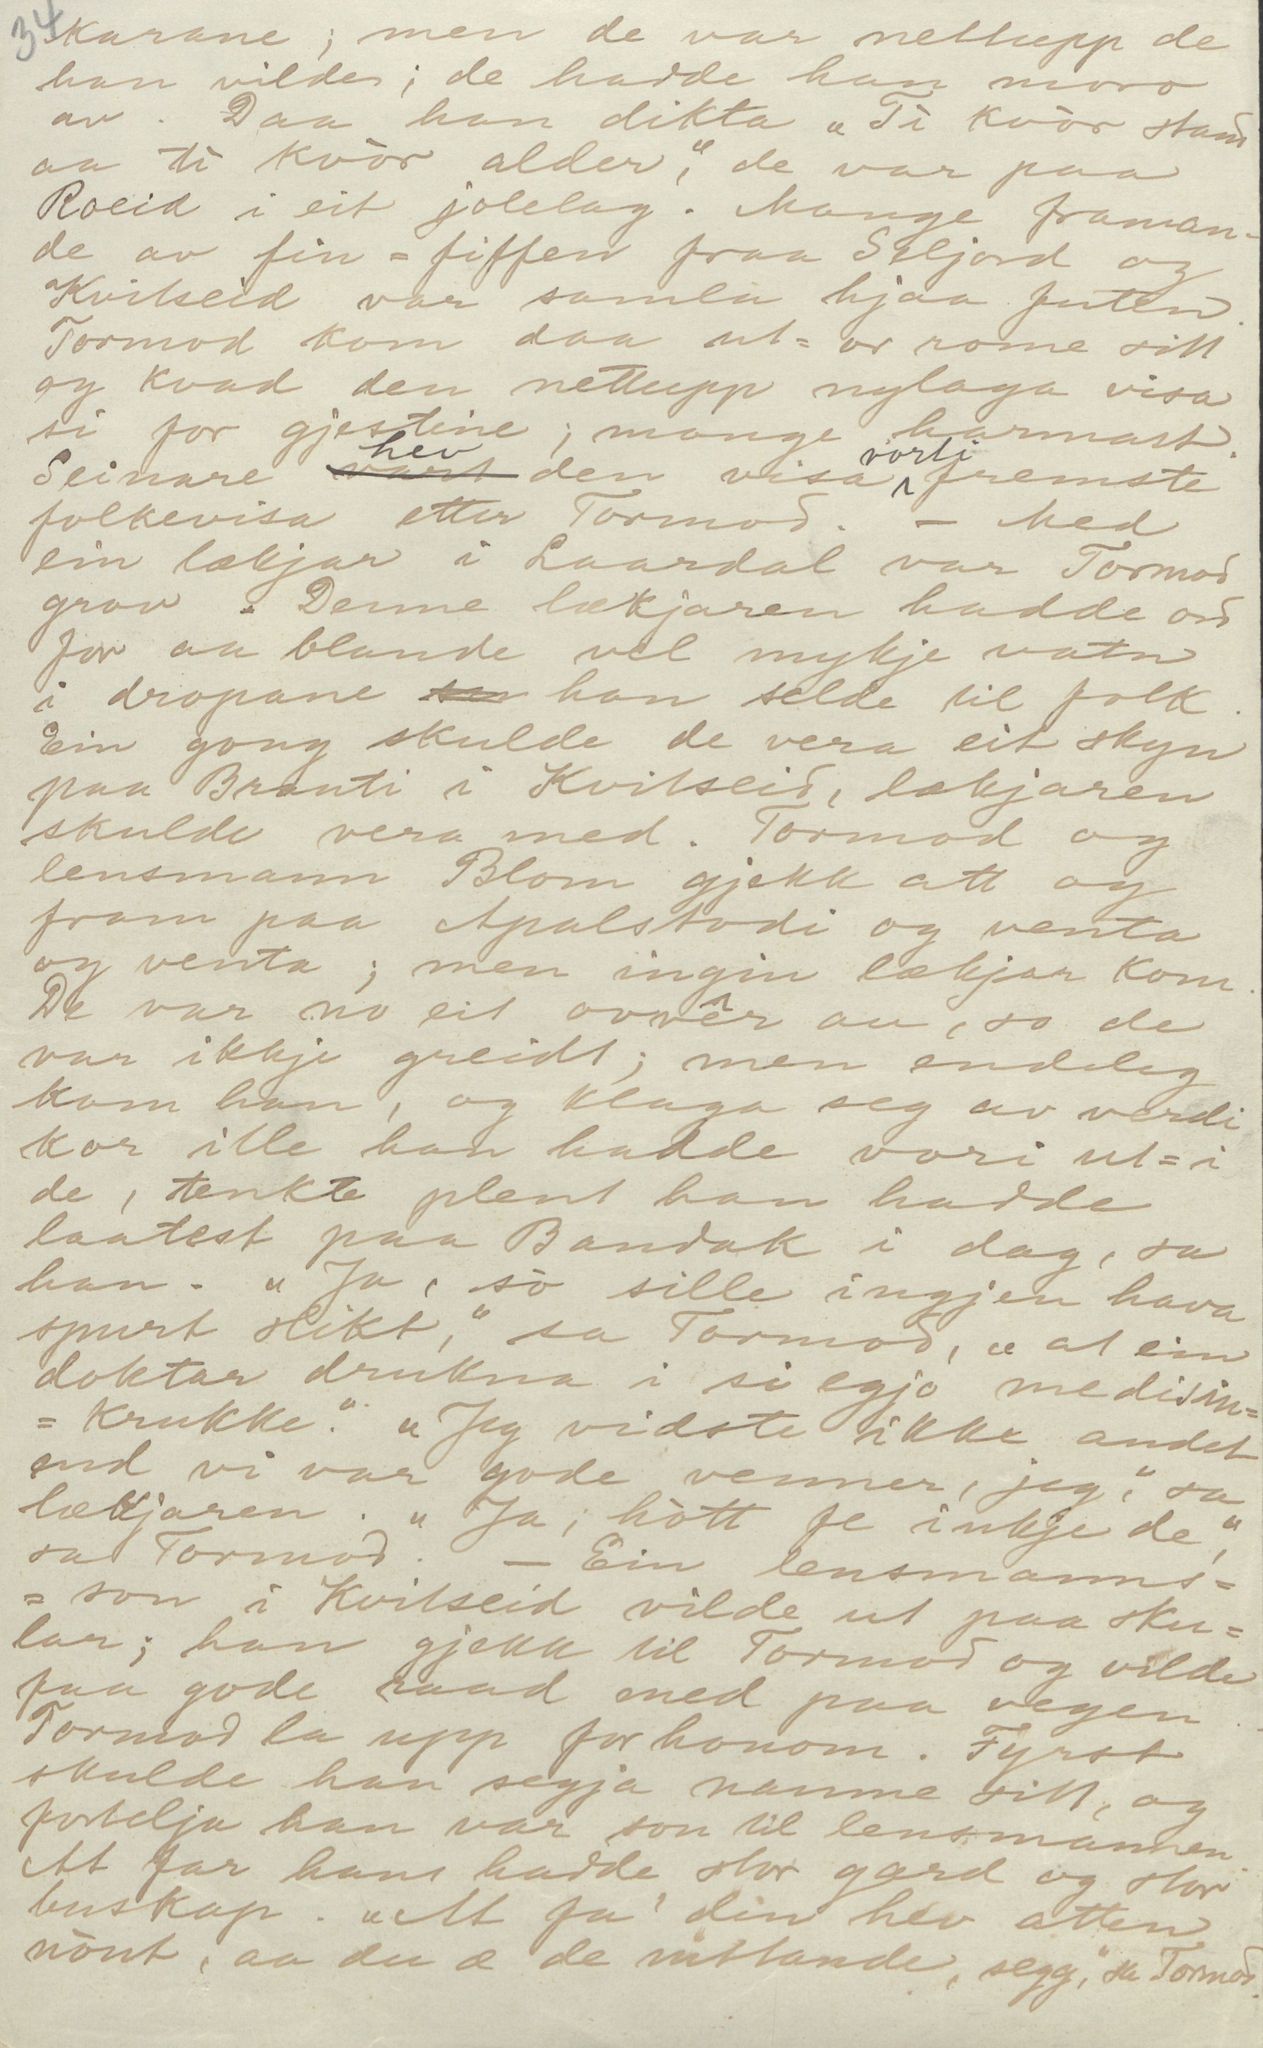 34
karane; men de var nettupp de
han vilde; de hadde han moro
av. Daa han dikta „Ti kvòr stand
aa ti kvòr alder,“ de var paa
Roeid i eit jolelag. Mange framan-
de av fin=fiffen fraa Seljord og
Kvitseid var samla hjaa futen.
Tormod kom daa ut=or rome sitt
og kvad den nettupp nylaga visa
si for gjestine; mange harmast.
Seinare vart hev den visa vorti fremste
folkevisa etter Tormod. — Med
ein lækjar i Laardal var Tormod
grov. Denne lækjaren hadde ord
for aa blande vel mykje vatn
i dropane han selde til folk.
Ein gong skulde de vera eit skyn
paa Brauti i Kvitseid, lækjaren
skulde vera med. Tormod og
lensmann Blom gjekk att og
fram paa Apalstodi og venta
og venta; men ingin lækjar kom.
De var no eit ovvêr au, so de
var ikkje greidt; men endeleg
kom han, og klaga seg av verdi
kor ille han hadde vori ut=i
de, tenkte plent han hadde
laatest paa Bandak i dag, sa
han. „Ja, sò sille ingjen hava
spurt slikt,“ sa Tormod, „at ein
doktar drukna i si egjo medisin=
=krukke.“ „Jeg vidste ikke andet
end vi var gode venner, jeg,“ sa
lækjaren. „Ja, hòtt fe inkje de,“
sa Tormod. — Ein lensmanns=
=son i Kvitseid vilde ut paa sku=
lar; han gjekk til Tormod og vilde
faa gode raad med paa vegen.
Tormod la upp for honom. Fyrst
skulde han segja namne sitt, og
fortelja han var son til lensmannen.
At far hans hadde stor gard og stor
buskap. „At fa' din hev atten
nònt, aa du æ de nittande, segg,“ sa Tormod.